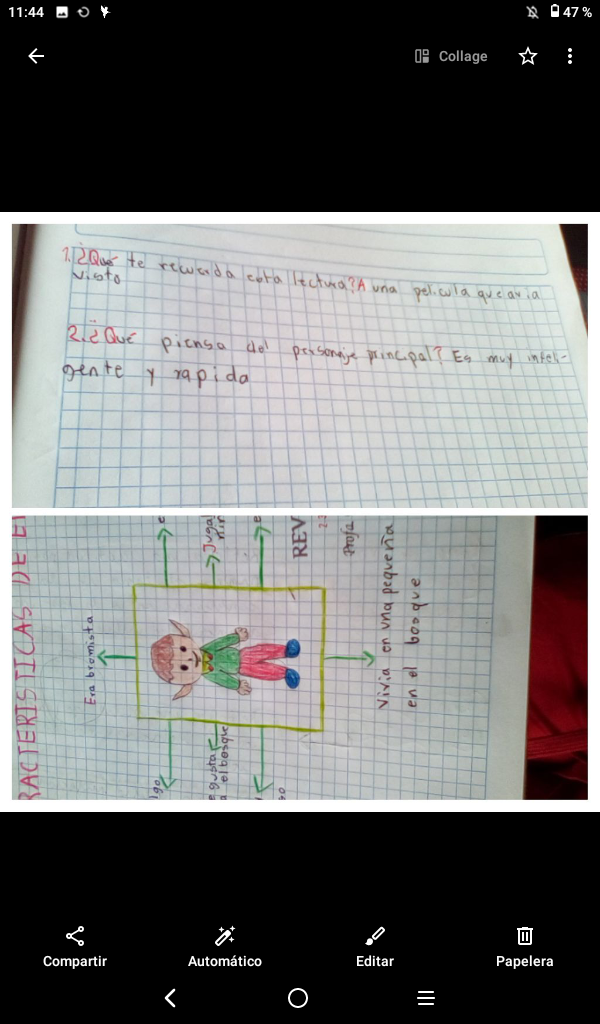 11:44
47 %
Collage
1. ¿Qué te recuerda esta lectura? A una pelicula que avia
visto
2. ¿Qué piensa del personaje principal? Es muy inteli-
gente y rapida
RACTERISTICAS DE E
Era bromista
Juga
REV
Profe
Vivia en una pequeña
en el bosque
e gusta
a el bosque
Compartir
Automático
Editar
Papelera